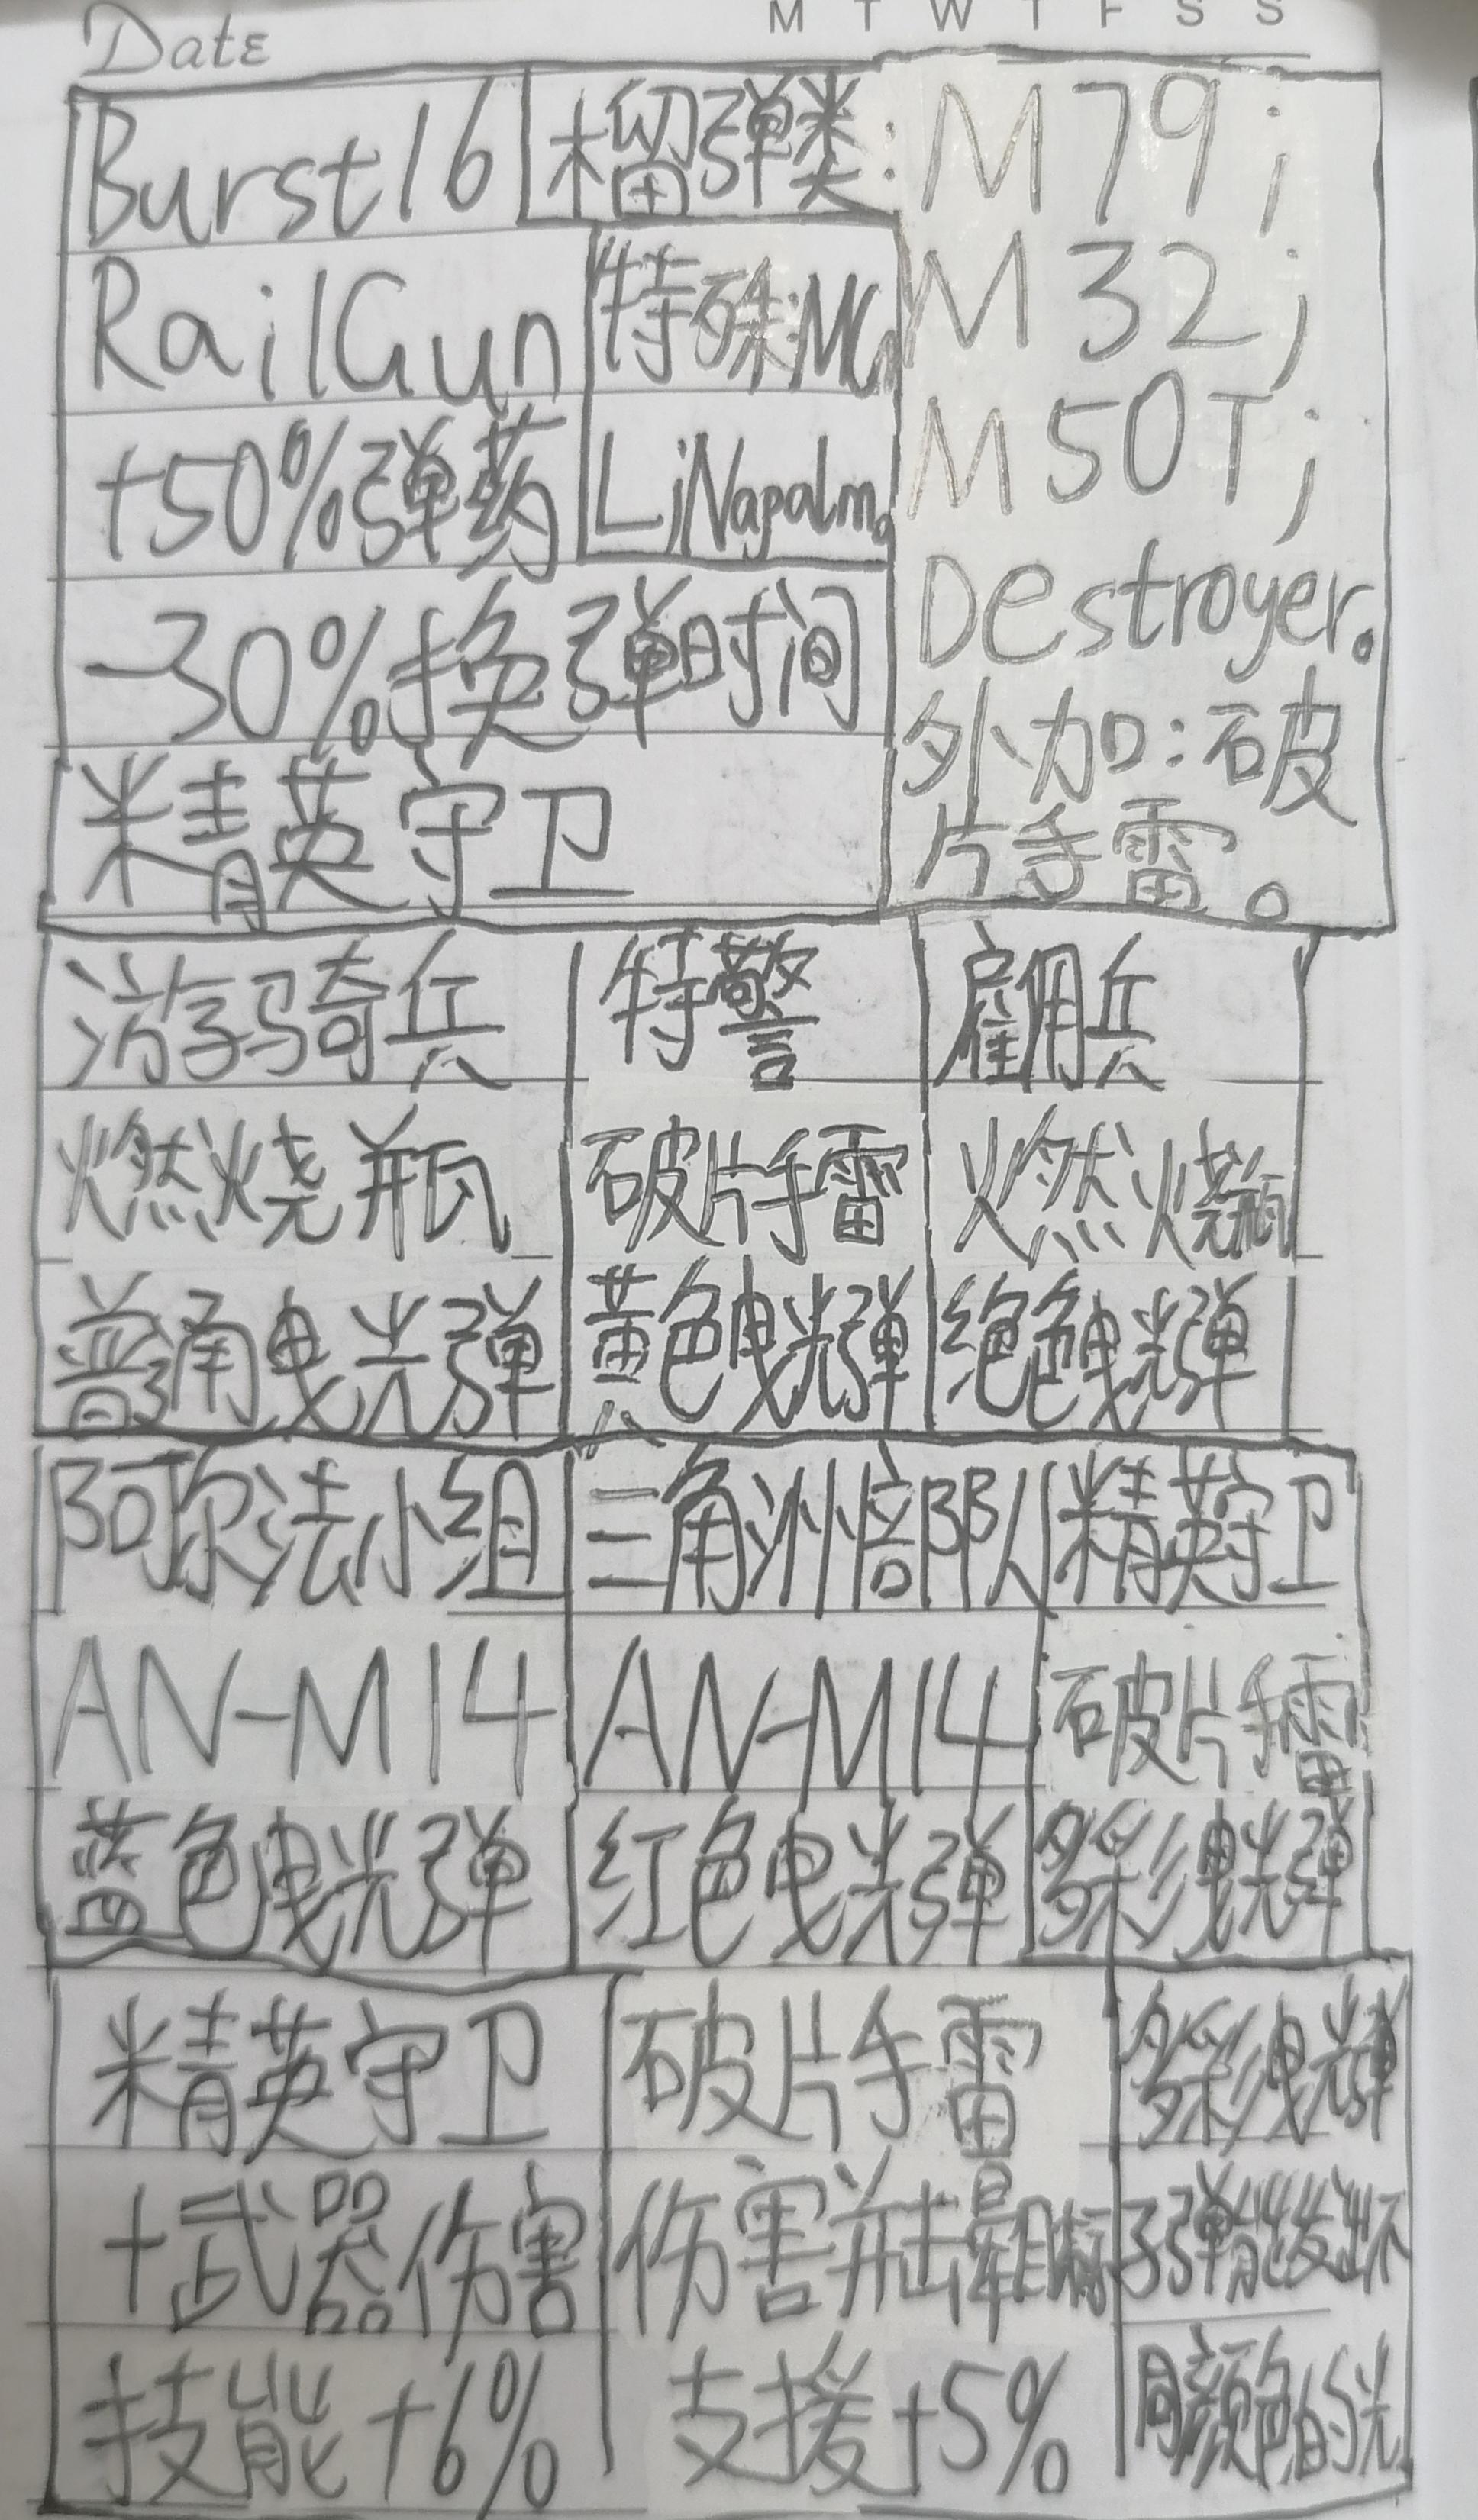 M T W T F S S
Date
Burst16
榴弹类:
M79;
M32;
M50T;
Destroyer。
外加:破
片手雷。
RailGun
特殊:MG
L;Napalm。
+50%弹药
-30%换弹时间
精英守卫
游骑兵
特警
雇佣兵
燃烧瓶
破片手雷
燃烧瓶
普通曳光弹
黄色曳光弹
绝色曳光弹
阿尔法小组
三角洲部队
精英守卫
AN-M14
AN-M14
破片手雷
蓝色曳光弹
红色曳光弹
多彩曳光弹
精英守卫
破片手雷
多彩曳光弹
+武器伤害
伤害
子弹能发出不
技能+6%
支援+5%
同颜色的光